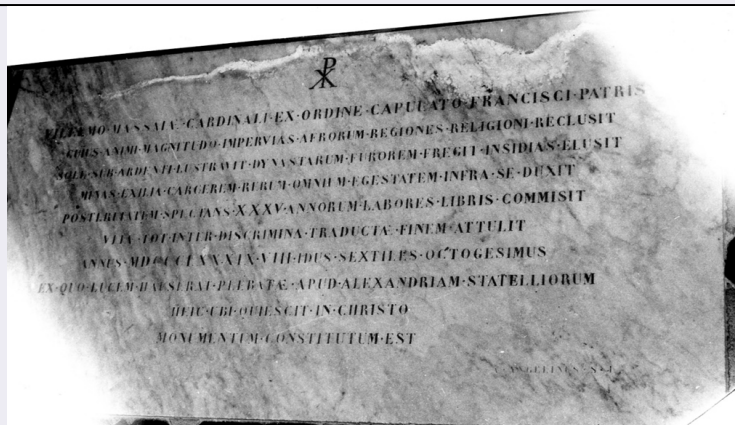 MASSAIA·CARDINALI·EX·ORDINE·CAPULATO·FRANCISCI·PATRIS
CUIUS·ANIMI·MAGNITUDO·IMPERVIAS·AFRORUM·REGIONES·RELIGIONI·RECLUSIT
SOLE·SUB·ARDENTI·LUSTRAVIT·DYNASTARUM·FUROREM·FREGIT·INSIDIAS·ELUSIT
MINAS·EXILIA·CARCEREM·RERUM·OMNIUM·EGESTATEM·INFRA·SE·DUXIT
POSTERITATEM·SPECTANS·XXXV·ANNORUM·LABORES·LIBRIS·COMMISIT
VITÆ·TOT·INTER·DISCRIMINA·TRADUCTÆ·FINEM·ATTULIT
MDCCCLXXXIX·VIII·IDUS·SEXTILES·OCTOGESIMUS
EX·QUO·LUCEM·HAUSERAT·PLEBATÆ·APUD·ALEXANDRIAM·STATELLIORUM
HEIC·UBI·QUIESCIT·IN·CHRISTO
MONUMENTUM·CONSTITUTUM·EST